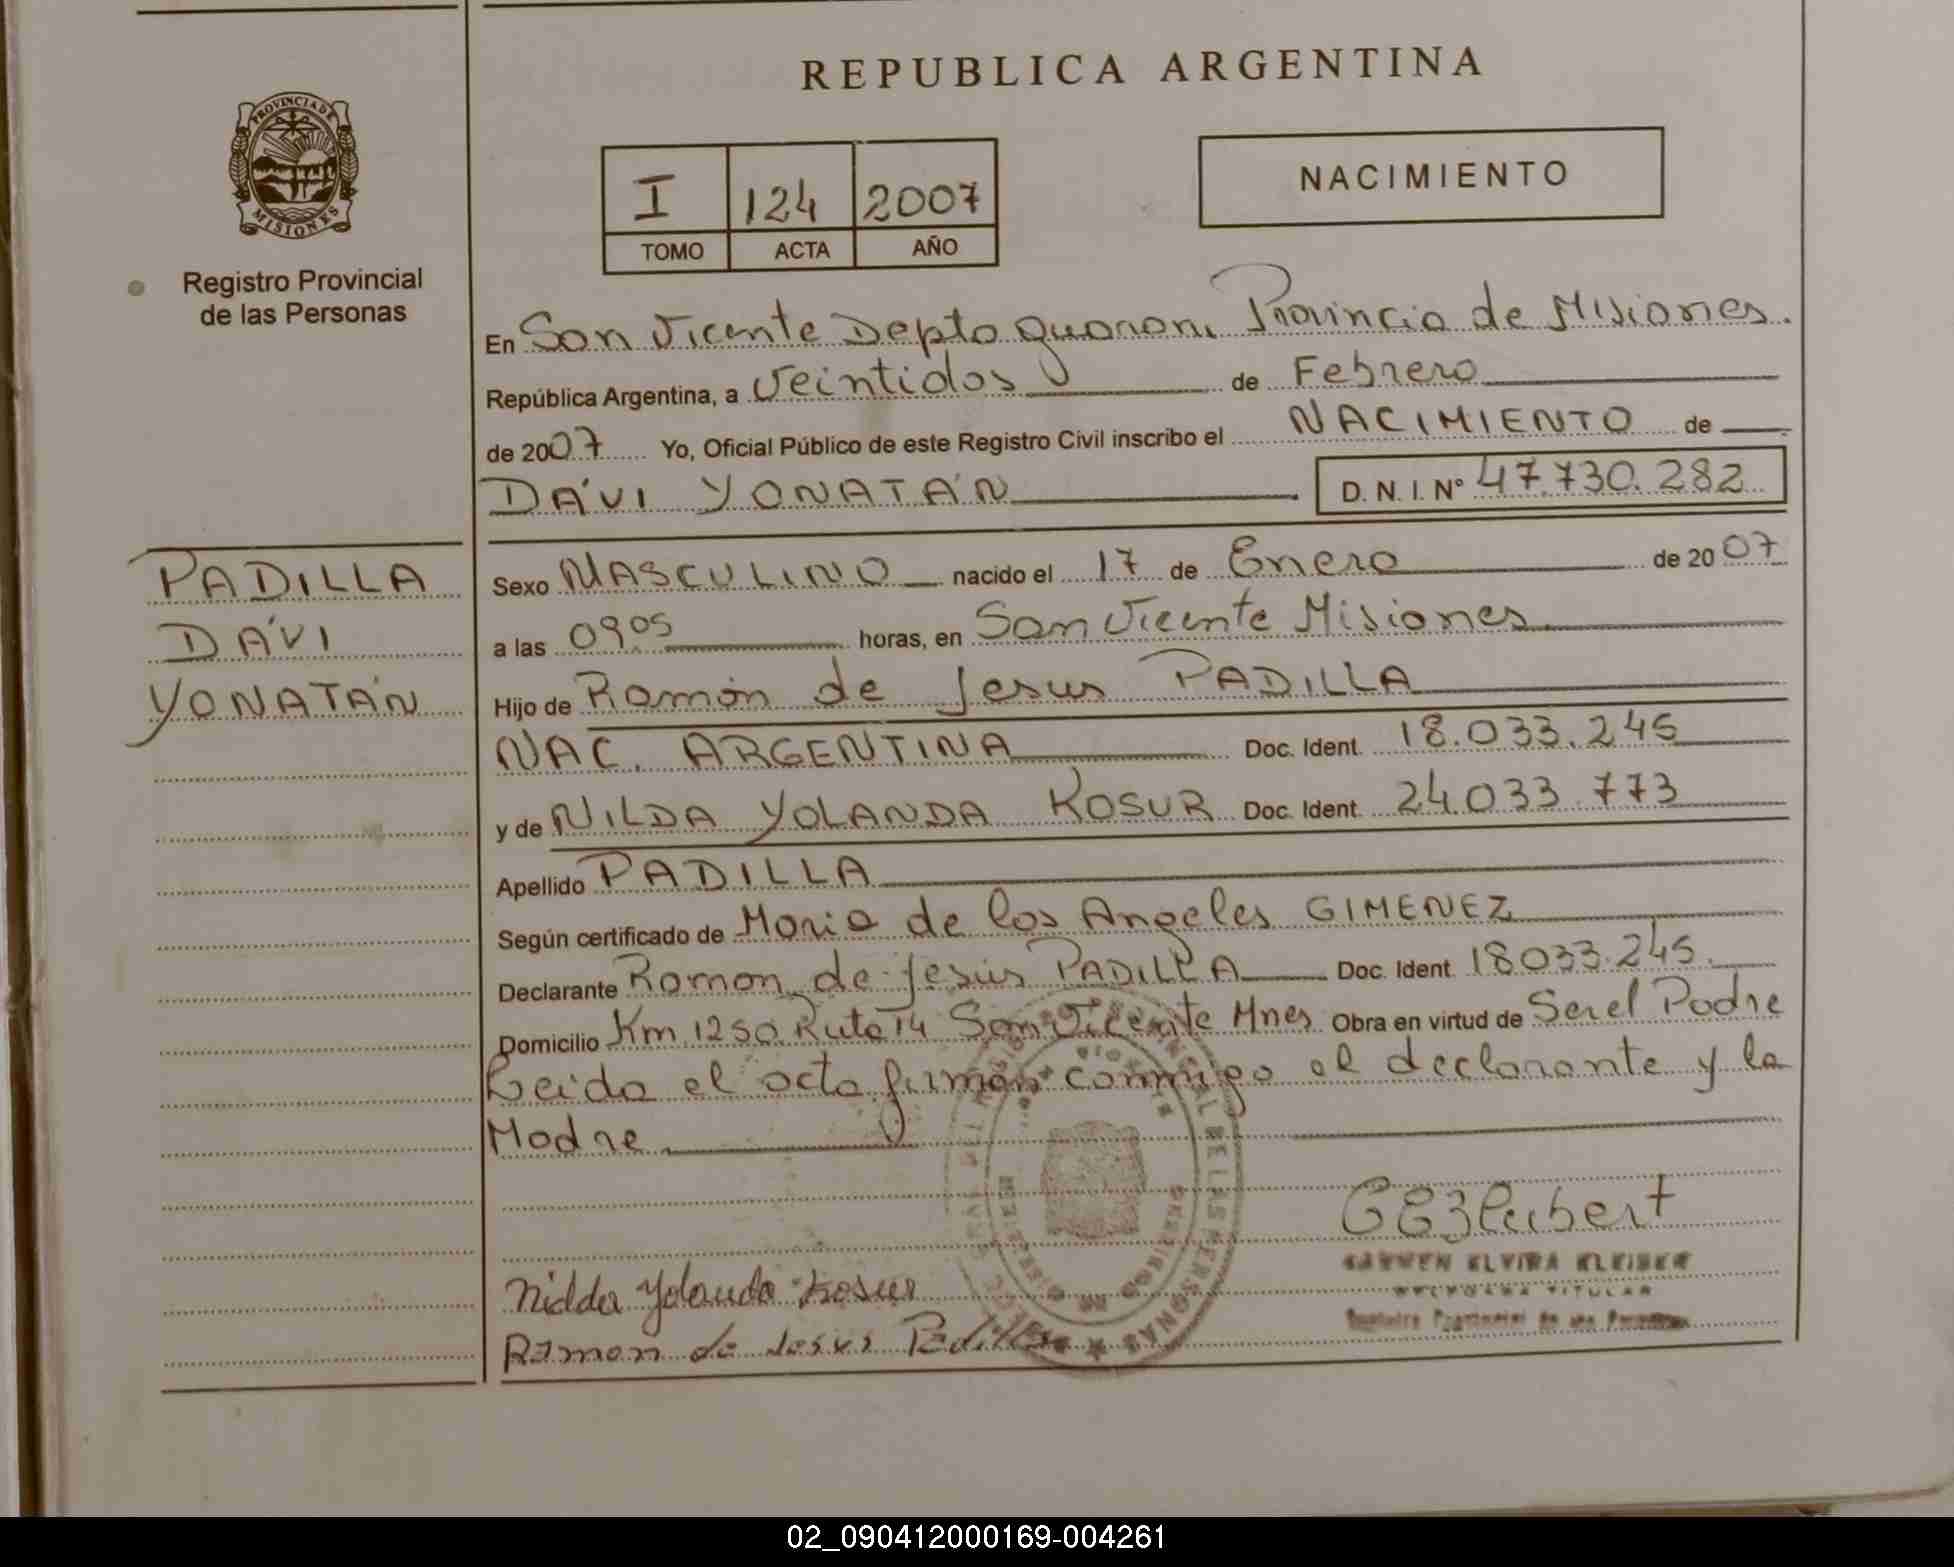 REPUBLICA ARGENTINA
PROVINCIA DE
MISIONES
Registro Provincial
de las Personas
I 124 2007
TOMO ACTA AÑO
NACIMIENTO
En San Vicente Depto Guarani Provincia de Misiones.
República Argentina, a Veintidos de Febrero
de 2007 Yo, Oficial Público de este Registro Civil inscribo el NACIMIENTO de
DÁVI YONATÁN D. N. I. Nº 47.730.282
PADILLA
DÁVI
YONATÁN
Sexo MASCULINO nacido el 17 de Enero de 2007
a las 09.05 horas, en San Vicente Misiones
Hijo de Ramón de Jesus PADILLA
NAC. ARGENTINA Doc. Ident. 18.033.245
y de NILDA YOLANDA KOSUR Doc. Ident. 24.033.773
Apellido PADILLA
Según certificado de Maria de los Angeles GIMENEZ
Declarante Ramon de Jesús PADILLA Doc. Ident 18.033.245.
Domicilio Km 1250 Ruta 14 San Vicente Mnes Obra en virtud de Ser el Padre
Leida el acta firman conmigo el declarante y la
Madre
Nidda Yolanda Kosur
Ramon de Jesus Padilla
CARMEN ELVIRA
TITULAR
02_090412000169-004261